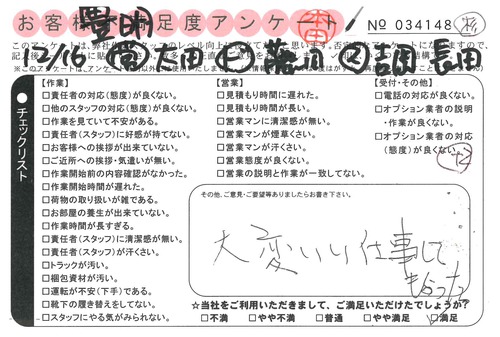 お客様満足度アンケート
豊明
№ 034148
12/16 営 太田 ヒ 藤川 ② 吉岡 長田
チェックリスト
【作業】
□責任者の対応(態度)が良くない。
□他のスタッフの対応(態度)が良くない。
□作業を見ていて不安がある。
□責任者(スタッフ)に好感が持てない。
□お客様への挨拶が出来ていない。
□ご近所への挨拶・気遣いが無い。
□作業開始前の内容確認がなかった。
□作業開始時間が遅れた。
□荷物の取り扱いが雑である。
□お部屋の養生が出来ていない。
□作業時間が長すぎる。
□責任者(スタッフ)に清潔感が無い。
□責任者(スタッフ)が汗くさい。
□トラックが汚い。
□梱包資材が汚い。
□運転が不安(下手)である。
□靴下の履き替えをしてない。
□スタッフにやる気がみられない。
【営業】
□見積もり時間に遅れた。
□見積もり時間が長い。
□営業マンに清潔感が無い。
□営業マンが煙草くさい。
□営業マンが汗くさい。
□営業態度が良くない。
□営業の説明と作業が一致してない。
【受付・その他】
□電話の対応が良くない。
□オプション業者の説明
・作業が良くない。
□オプション業者の対応
(態度)が良くない。
その他、ご意見・ご要望等ありましたらお書き下さい。
大変いい仕事して
もらった
☆当社をご利用いただきまして、ご満足いただけたでしょうか?
□不満 □やや不満 □普通 □やや満足 □満足